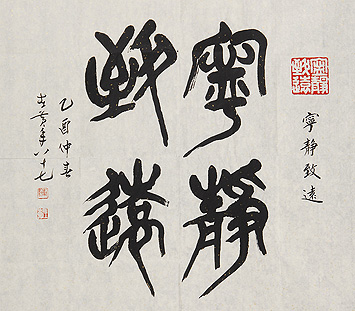 寧靜
致遠
寧靜致遠
乙酉仲春
年八十七